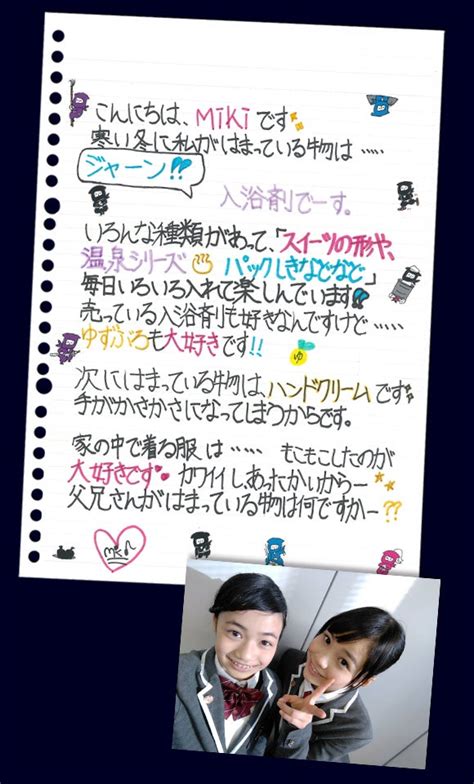 こんにちは、MiKiです
寒い冬に私がはまっている物は……
ジャーン!!
入浴剤でーす。
いろんな種類があって、「スイーツの形や、
温泉シリーズ♨ パックしきなどなど」
毎日いろいろ入れて楽しんでいます!!
売っている入浴剤も好きなんですけど……
ゆずぶろも大好きです!!
ゆ
次にはまっている物は、ハンドクリームです
手がかさかさになってしまうからです。
家の中で着る服は…… もこもこしたのが
大好きです カワイイしあったかいからー
父兄さんがはまっている物は何ですかー??